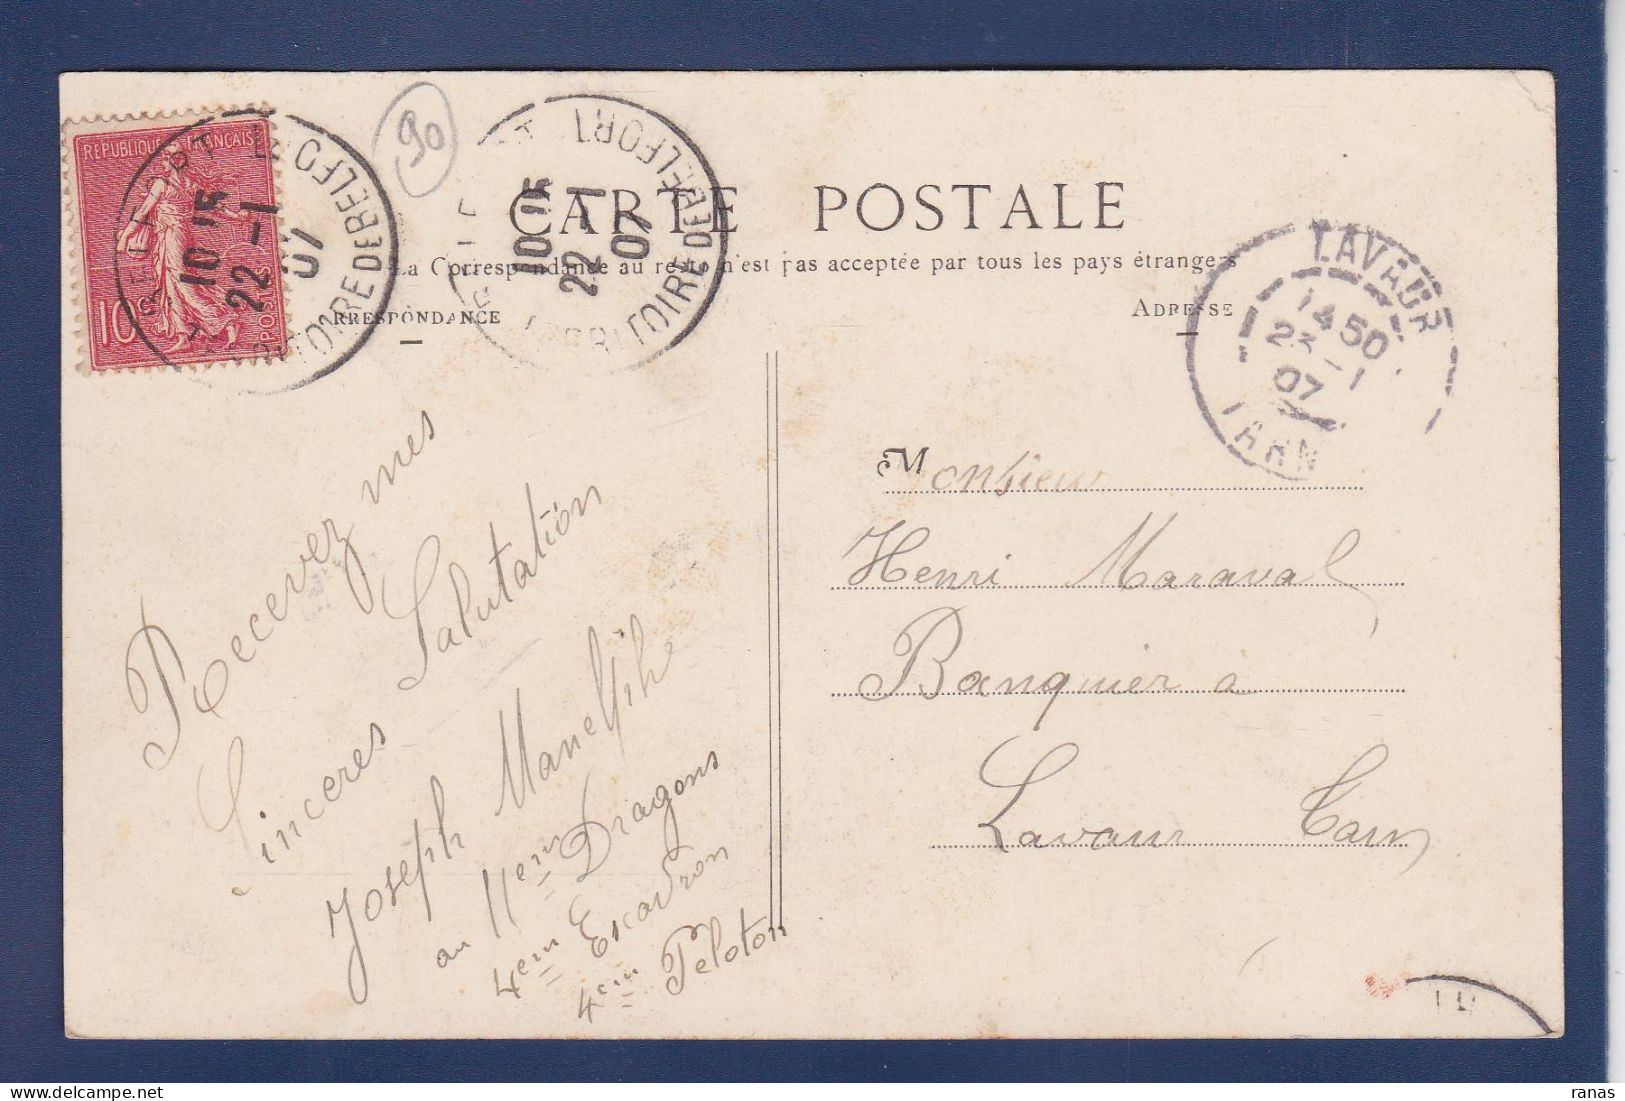 REPUBLIQUE FRANÇAISE
10c
POSTES
BELFORT
10 15
22 - 1
07
TERRITOIRE DE BELFORT
90
BELFORT
10 15
22 - 1
07
TERRITOIRE DE BELFORT
CARTE POSTALE
La Correspondance au recto n'est pas acceptée par tous les pays étrangers
CORRESPONDANCE
ADRESSE
LAVAUR
14 50
23 - 1
07
TARN
Recevez mes
Sinceres Salutation
Joseph
au 11em Dragons
4em Escadron
4em Peloton
Monsieur
Henri Maraval
Banquier a
Lavaur Tarn
ranas